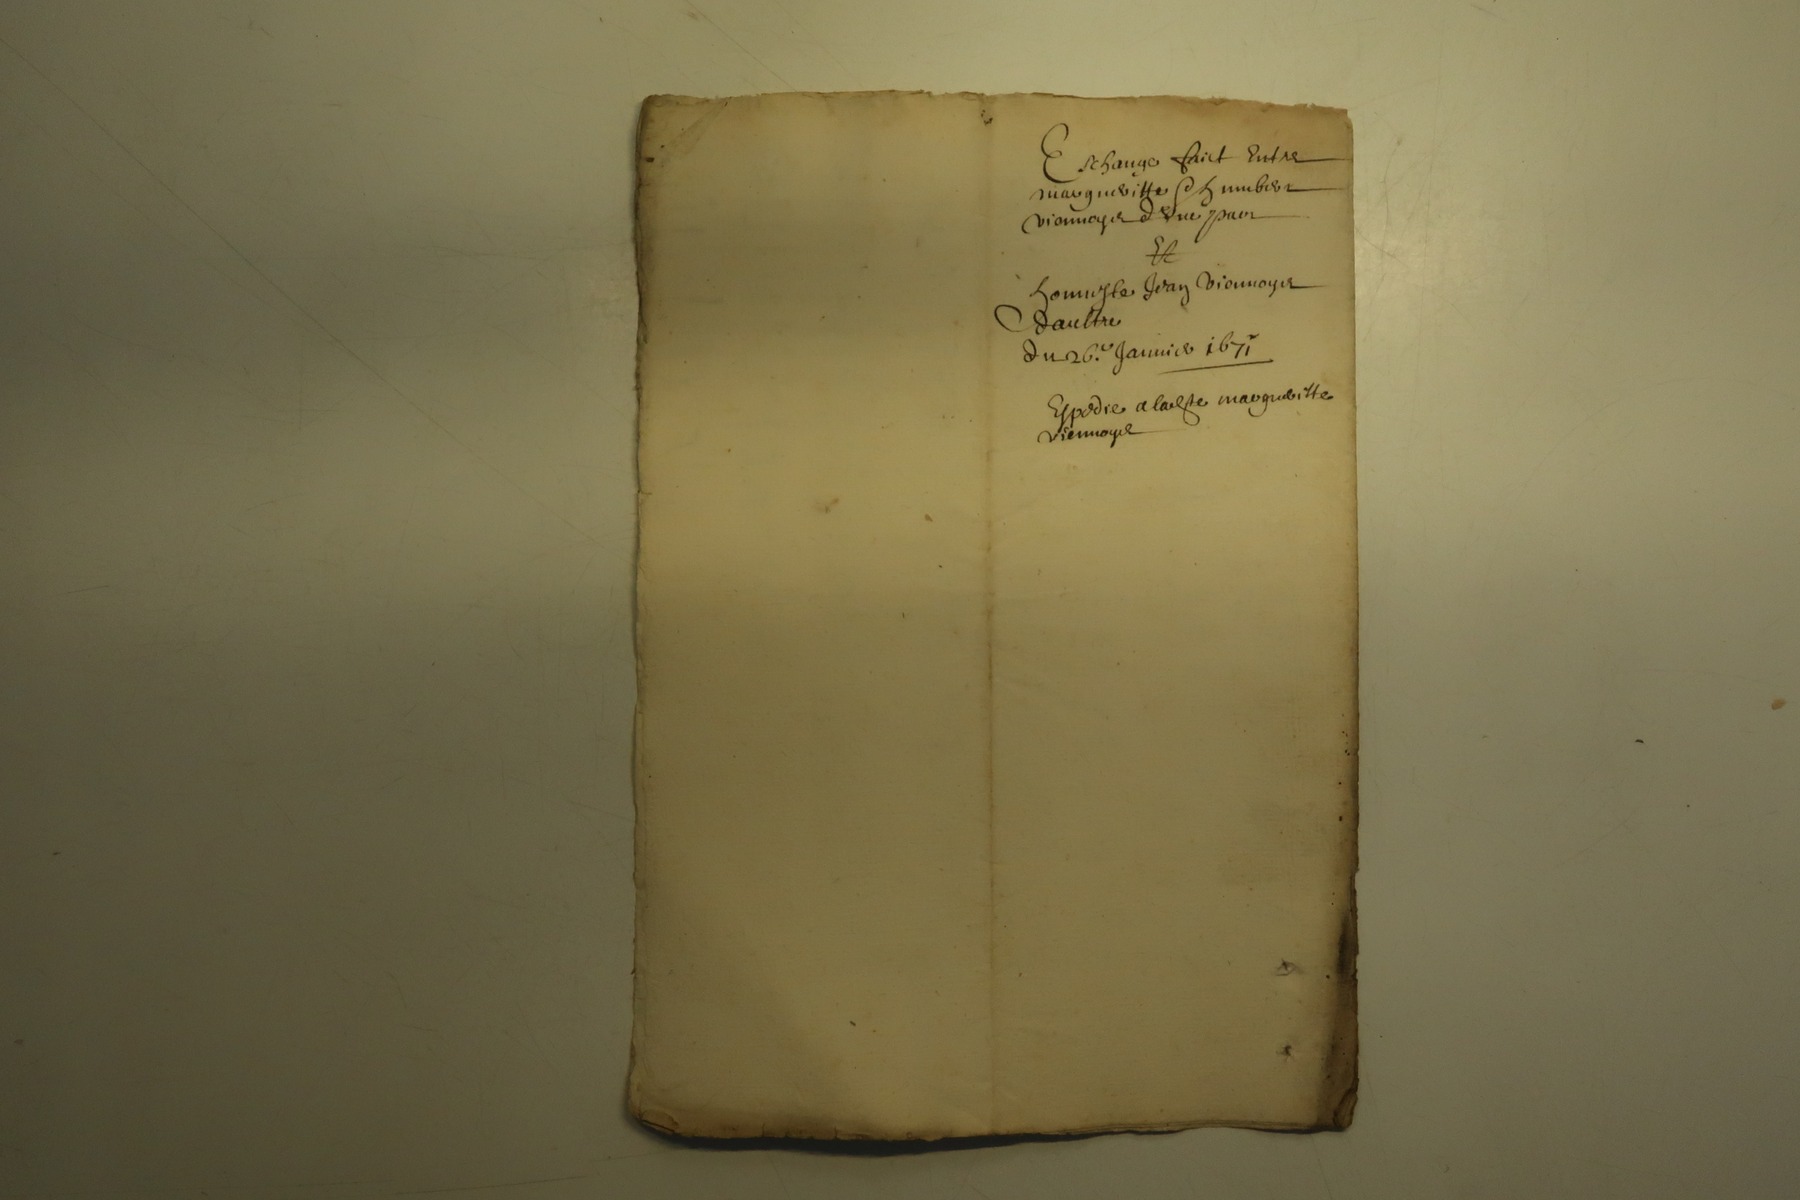 Eschange faict Entre
margueritte & humbert
viennoys d'vne part
Et
honneste Jean viennoys
d'aultre
du 26.e Janvier 1671
Expedie a ladite margueritte
viennoys